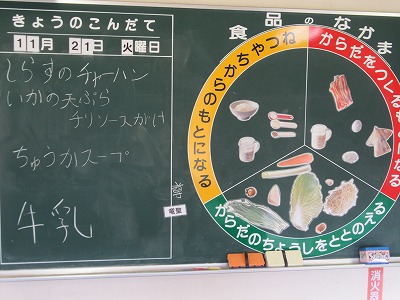 きょうのこんだて
11月 21日 火曜日
しらすのチャーハン
いかの天ぷら
チリソースがけ
ちゅうかスープ
牛乳
食品のなかま
ねつやちからのもとになる
からだをつくるもとになる
からだのちょうしをととのえる
消火器